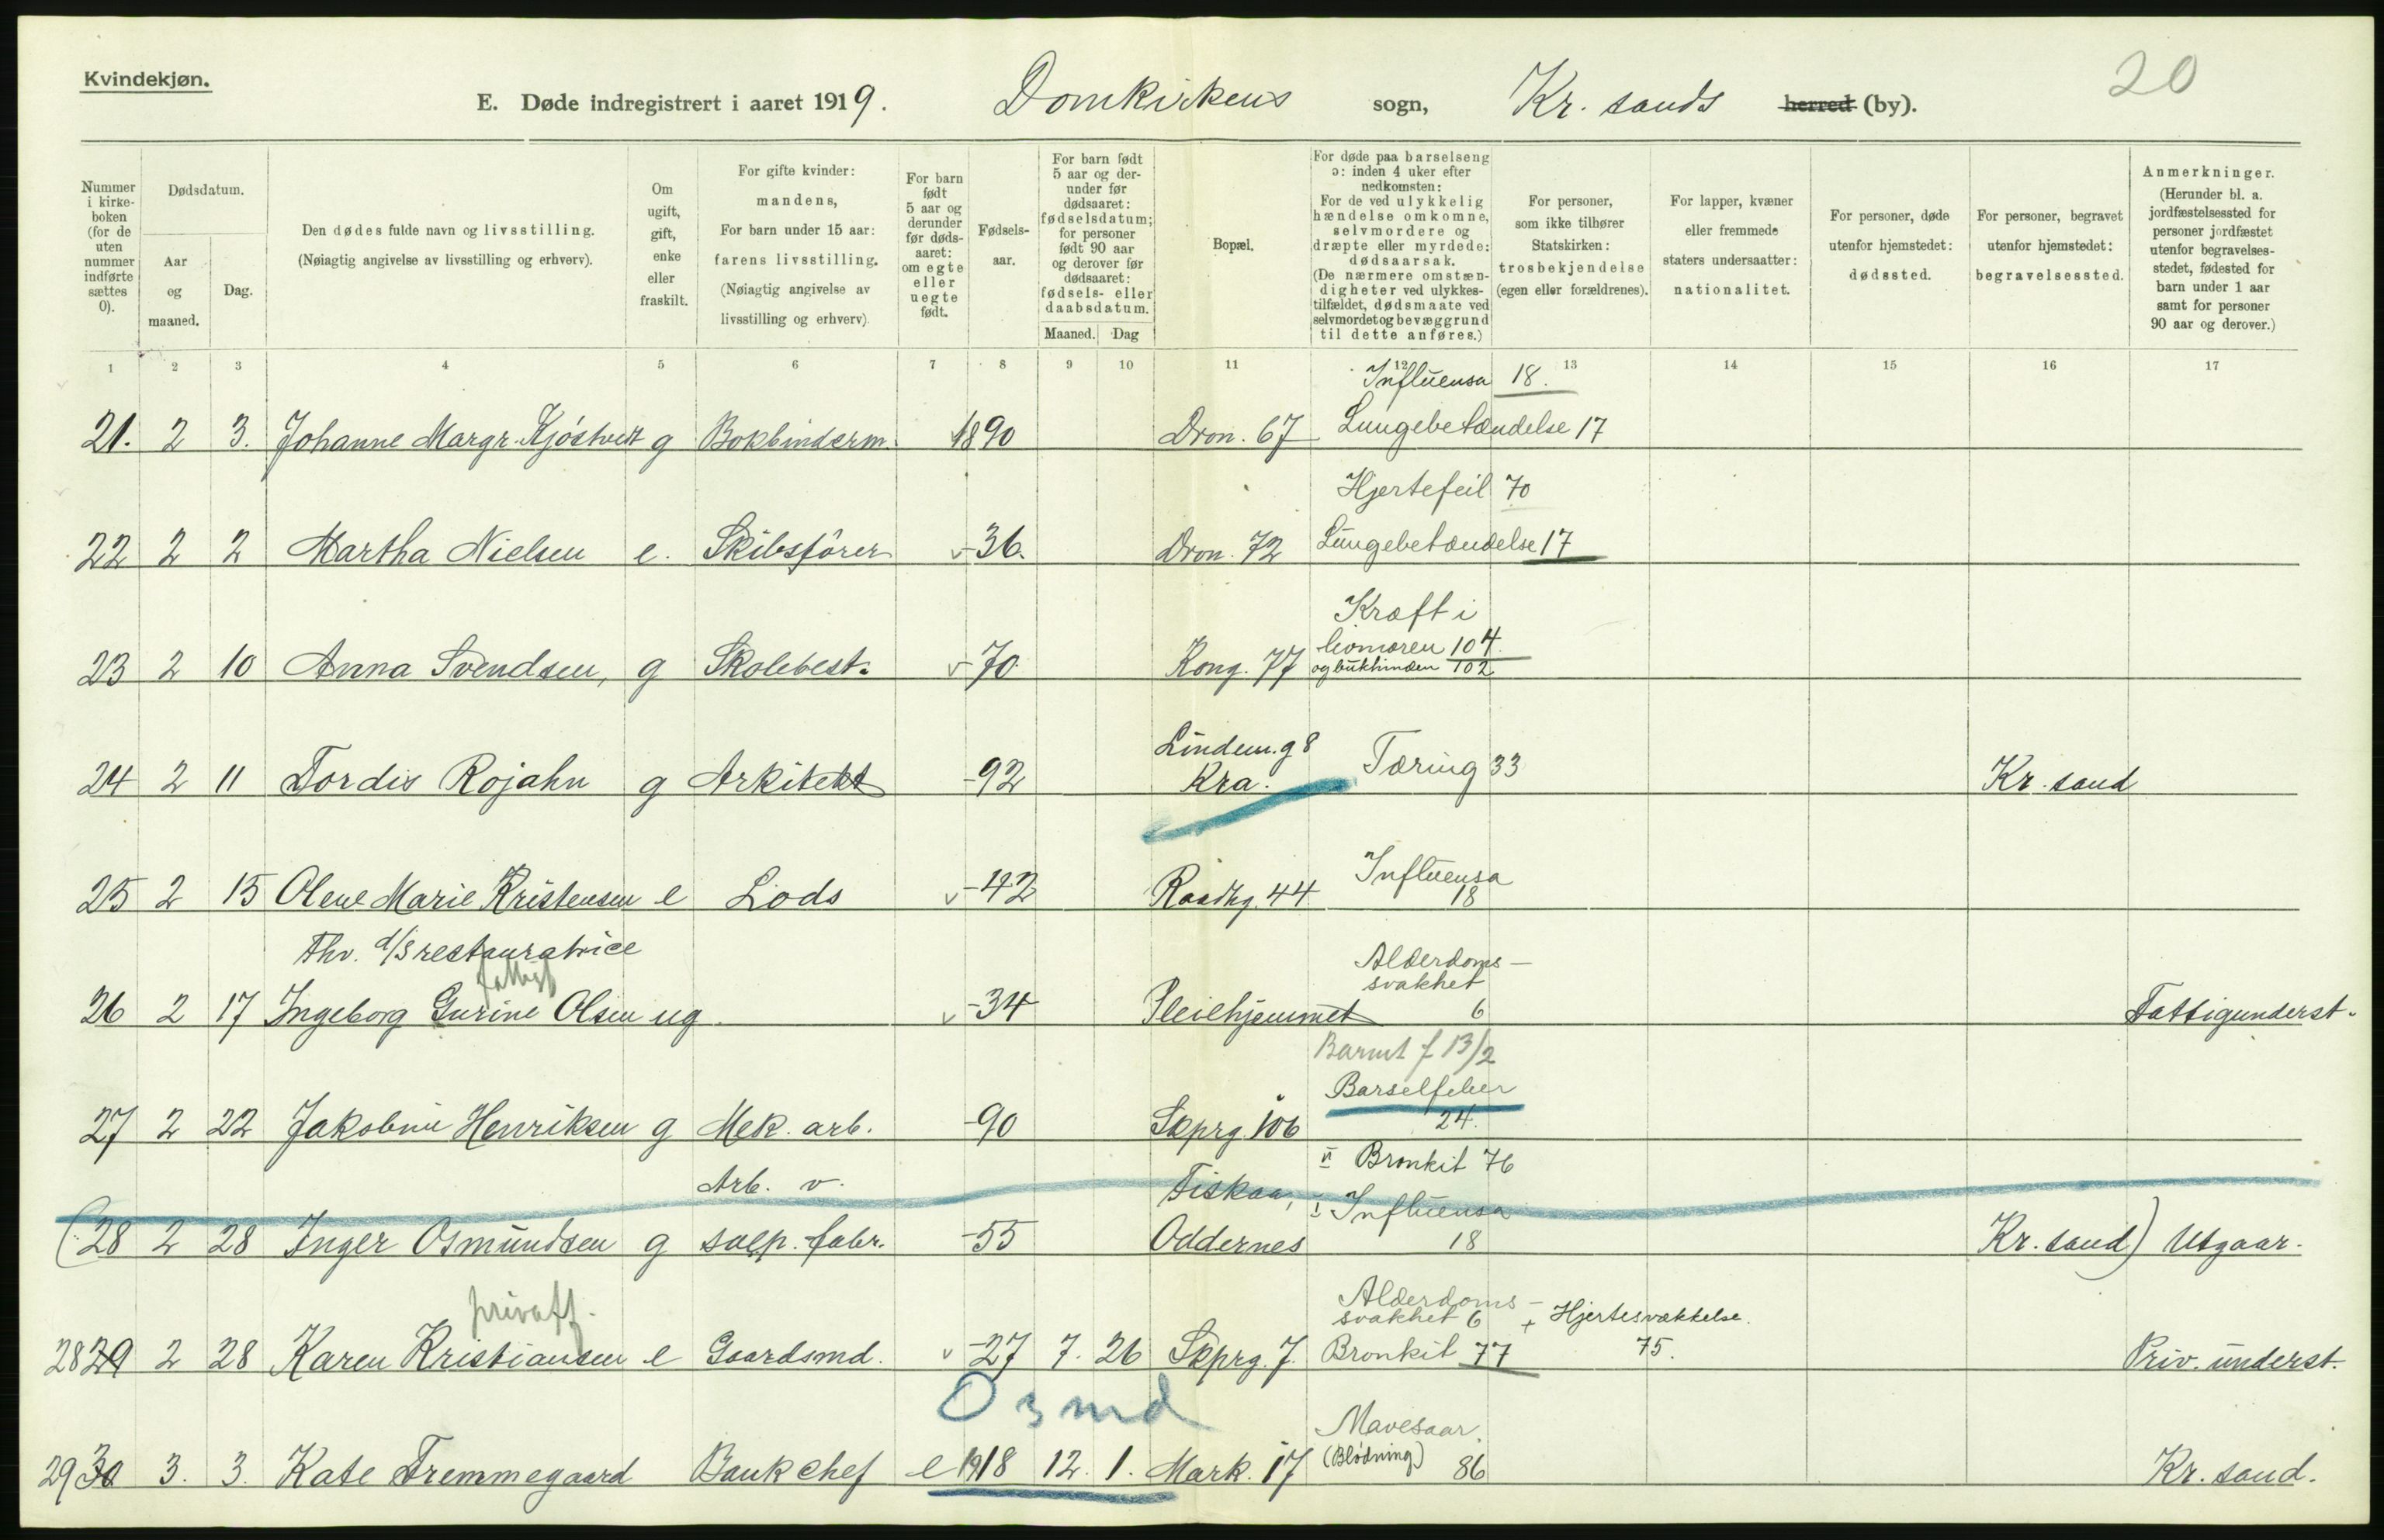 Kvindekjøn.
E. Døde indregistrert i aaret 1919. Domkirkens sogn, Kr. sands herred (by). 20
Nummer i kirkeboken (for de uten nummer indførte sættes 0).
Dødsdatum.
Aar og maaned.
Dag.
Den dødes fulde navn og livsstilling.
(Nøiagtig angivelse av livsstilling og erhverv).
Om ugift, gift, enke eller fraskilt.
For gifte kvinder: mandens,
For barn under 15 aar: farens livsstilling.
(Nøiagtig angivelse av livsstilling og erhverv)
For barn født 5 aar og derunder før dødsaaret: om egte eller uegte født.
Fødselsaar.
For barn født 5 aar og derunder før dødsaaret: fødselsdatum; for personer født 90 aar og derover før dødsaaret: fødsels- eller daabsdatum.
Maaned. Dag
Bopæl.
For døde paa barselseng ɔ: inden 4 uker efter nedkomsten:
For de ved ulykkelig hændelse omkomne, selvmordere og dræpte eller myrdede: dødsaarsak.
(De nærmere omstændigheter ved ulykkestilfældet, dødsmaate ved selvmordet og bevæggrund til dette anføres.)
For personer, som ikke tilhører Statskirken: trosbekjendelse (egen eller forældrenes).
For lapper, kvæner eller fremmede staters undersaatter: nationalitet.
For personer, døde utenfor hjemstedet: dødssted.
For personer, begravet utenfor hjemstedet: begravelsessted.
Anmerkninger.
(Herunder bl. a. jordfæstelsessted for personer jordfæstet utenfor begravelsesstedet, fødested for barn under 1 aar samt for personer 90 aar og derover.)
1 2 3 4 5 6 7 8 9 10 11 12 13 14 15 16 17
Influensa 18.
21. 2 3. Johanne Margr. Kjöstvedt g Bokbinderm. 1890 Dron. 67 Lungebetændelse 17
Hjertefeil 70
22 2 2 Martha Nielsen e. Skibsförer v -36. Dron. 72 Lungebetændelse 17
Kræft i
livmoren 104.
23 2 10 Anna Svendsen, g Skolebest. v -70 Kong. 77 og bukhinden 102
Lindem. g 8
24 2 11 Tordis Rojahn g Arkitekt -92 Kra. Tæring 33 Kr. sand
Influensa
25 2 15 Olene Marie Kristensen e Lods v -42 Raadhg. 44 18
Fhv. d/s restauratrice
Alderdoms-
svakhet
26 2 17 Ingeborg Gurine Olsen ug. v -34 Pleiehjemmet 6 Fattigunderst.
Barnet f 13/2
Barselfeber
27 2 22 Jakobine Henriksen g Mek. arb. -90 Skprg. 106 24.
II Bronkit 76
Arb. v. Fiskaa, I Influensa
(28 2 28 Inger Osmundsen g salp. fabr. -55 Oddernes 18 Kr. sand) Utgaar.
privatf.
Alderdoms-
svakhet 6 + Hjertesvækkelse.
28 29 2 28 Karen Kristiansen e Gaardsmd. v -27 7. 26 Skprg. 7. Bronkit 77 75. Priv. underst.
0 3 md
Mavesaar.
29 30 3. 3. Kate Fremmegaard Bankchef e 1918 12. 1. Mark. 17 (Blødning) 86 Kr. sand.